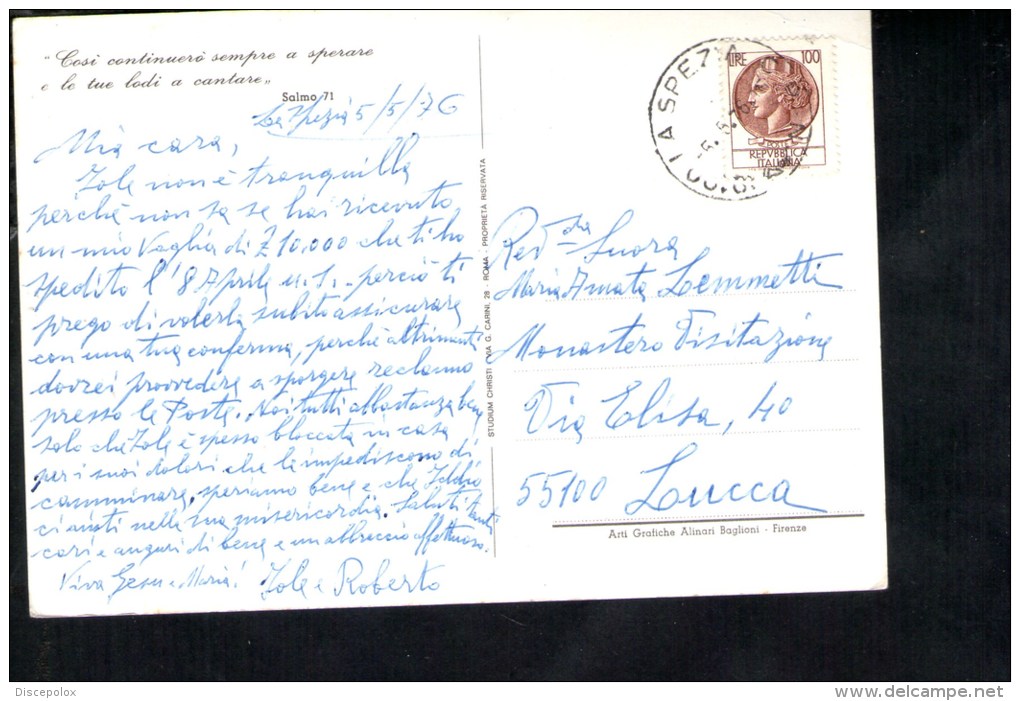 "Così continuerò sempre a sperare
e le tue lodi a cantare„
Salmo 71
La Spezia 5/5/76
Mia cara,
Iole non è tranquilla
perchè non sa se hai ricevuto
un mio Vaglia di £ 10.000 che ti ho
spedito l'8 Aprile u.s. - perciò ti
prego di volerla subito assicurare
con una tua conferma, perchè altrimenti
dovrei provvedere a sporgere reclamo
presso le Poste. Noi tutti abbastanza bene
solo che Iole è spesso bloccata in casa
per i suoi dolori che le impediscono di
camminare, speriamo bene e che Iddio
ci aiuti nella sua misericordia. Saluti tanti
cari e auguri di bene e un abbraccio affettuoso.
Viva Gesù e Maria! Iole e Roberto
STUDIUM CHRISTI (VIA G. CARINI, 28 - ROMA - PROPRIETÀ RISERVATA
LIRE 100
POSTE
REPVBBLICA
ITALIANA
LA SPEZIA
-5.5.76
Rev.da Suora
Maria Amata Lemmetti
Monastero Visitazione
Via Elisa, 40
55100 Lucca
Arti Grafiche Alinari Baglioni - Firenze
Discepolox
delcampe.net